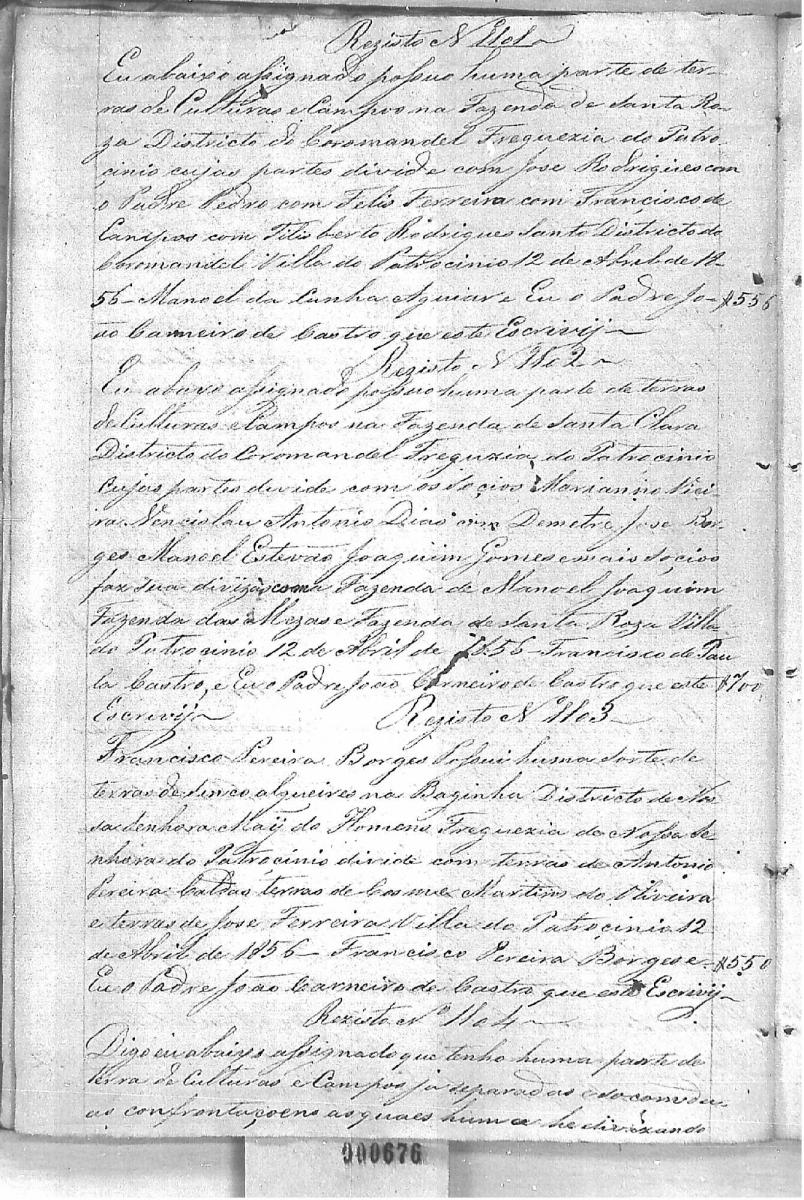 Rezisto N 1101
Eu abaixo assignado possuo huma parte de ter-
ras de Culturas e Campos na Fazenda de Santa Ro-
za Districto do Coromandel Freguezia do Patro-
cinio cujas partes divide com Jose Rodrigues com
o Padre Pedro com Felis Ferreira com Francisco de
Campos com Filisberto Rodrigues Santo Districto do
Coromandel Villa do Patrocinio 12 de Abril de 18-
56 - Manoel da Cunha Aguiar e Eu o Padre Jo- $556
ão Carneiro de Castro que este Escrivij
Rezisto N 1102
Eu abaxo assignado possuo huma parte de terras
de Culturas e Campos na Fazenda de Santa Clara
Districto do Coromandel Freguzia do Patrocinio
Cujas partes divide com os Socios Marianno Viei-
ra Vencislau Antonio Dias com Demetre Jose Bor-
ges Manoel Estevão Joaquim Gomes e mais Socios
faz sua divizão com a Fazenda de Manoel Joaquim
Fazenda das Mezas e Fazenda de Santa Roza Villa
do Patrocinio 12 de Abril de 1856 - Francisco de Pau
la Castro, e Eu o Padre João Carneiro de Castro que este $700
Escrivij
Rezisto N 1103
Francisco Pereira Borges Possui huma Sorte de
terras de Sinco alqueires na Baginha Districto de Nos
sa Senhora Maÿ do Homens Freguezia de Nossa Se-
nhora do Patrocinio divide com terras de Antonio
Pereira Caldas terras de Cosme Martins do Oliveira
e terras de Jose Ferreira Villa do Patrocinio 12
de Abril de 1856 - Francisco Pereira Borges e - $550
Eu o Padre João Carneiro de Castro que este Escrivij
Rezisto Nº 1104
Digo eu abaixo assignado que tenho huma parte de
terra de Culturas e Campos ja separadas e
as confrontaçoens as quaes huma he divizando
000676